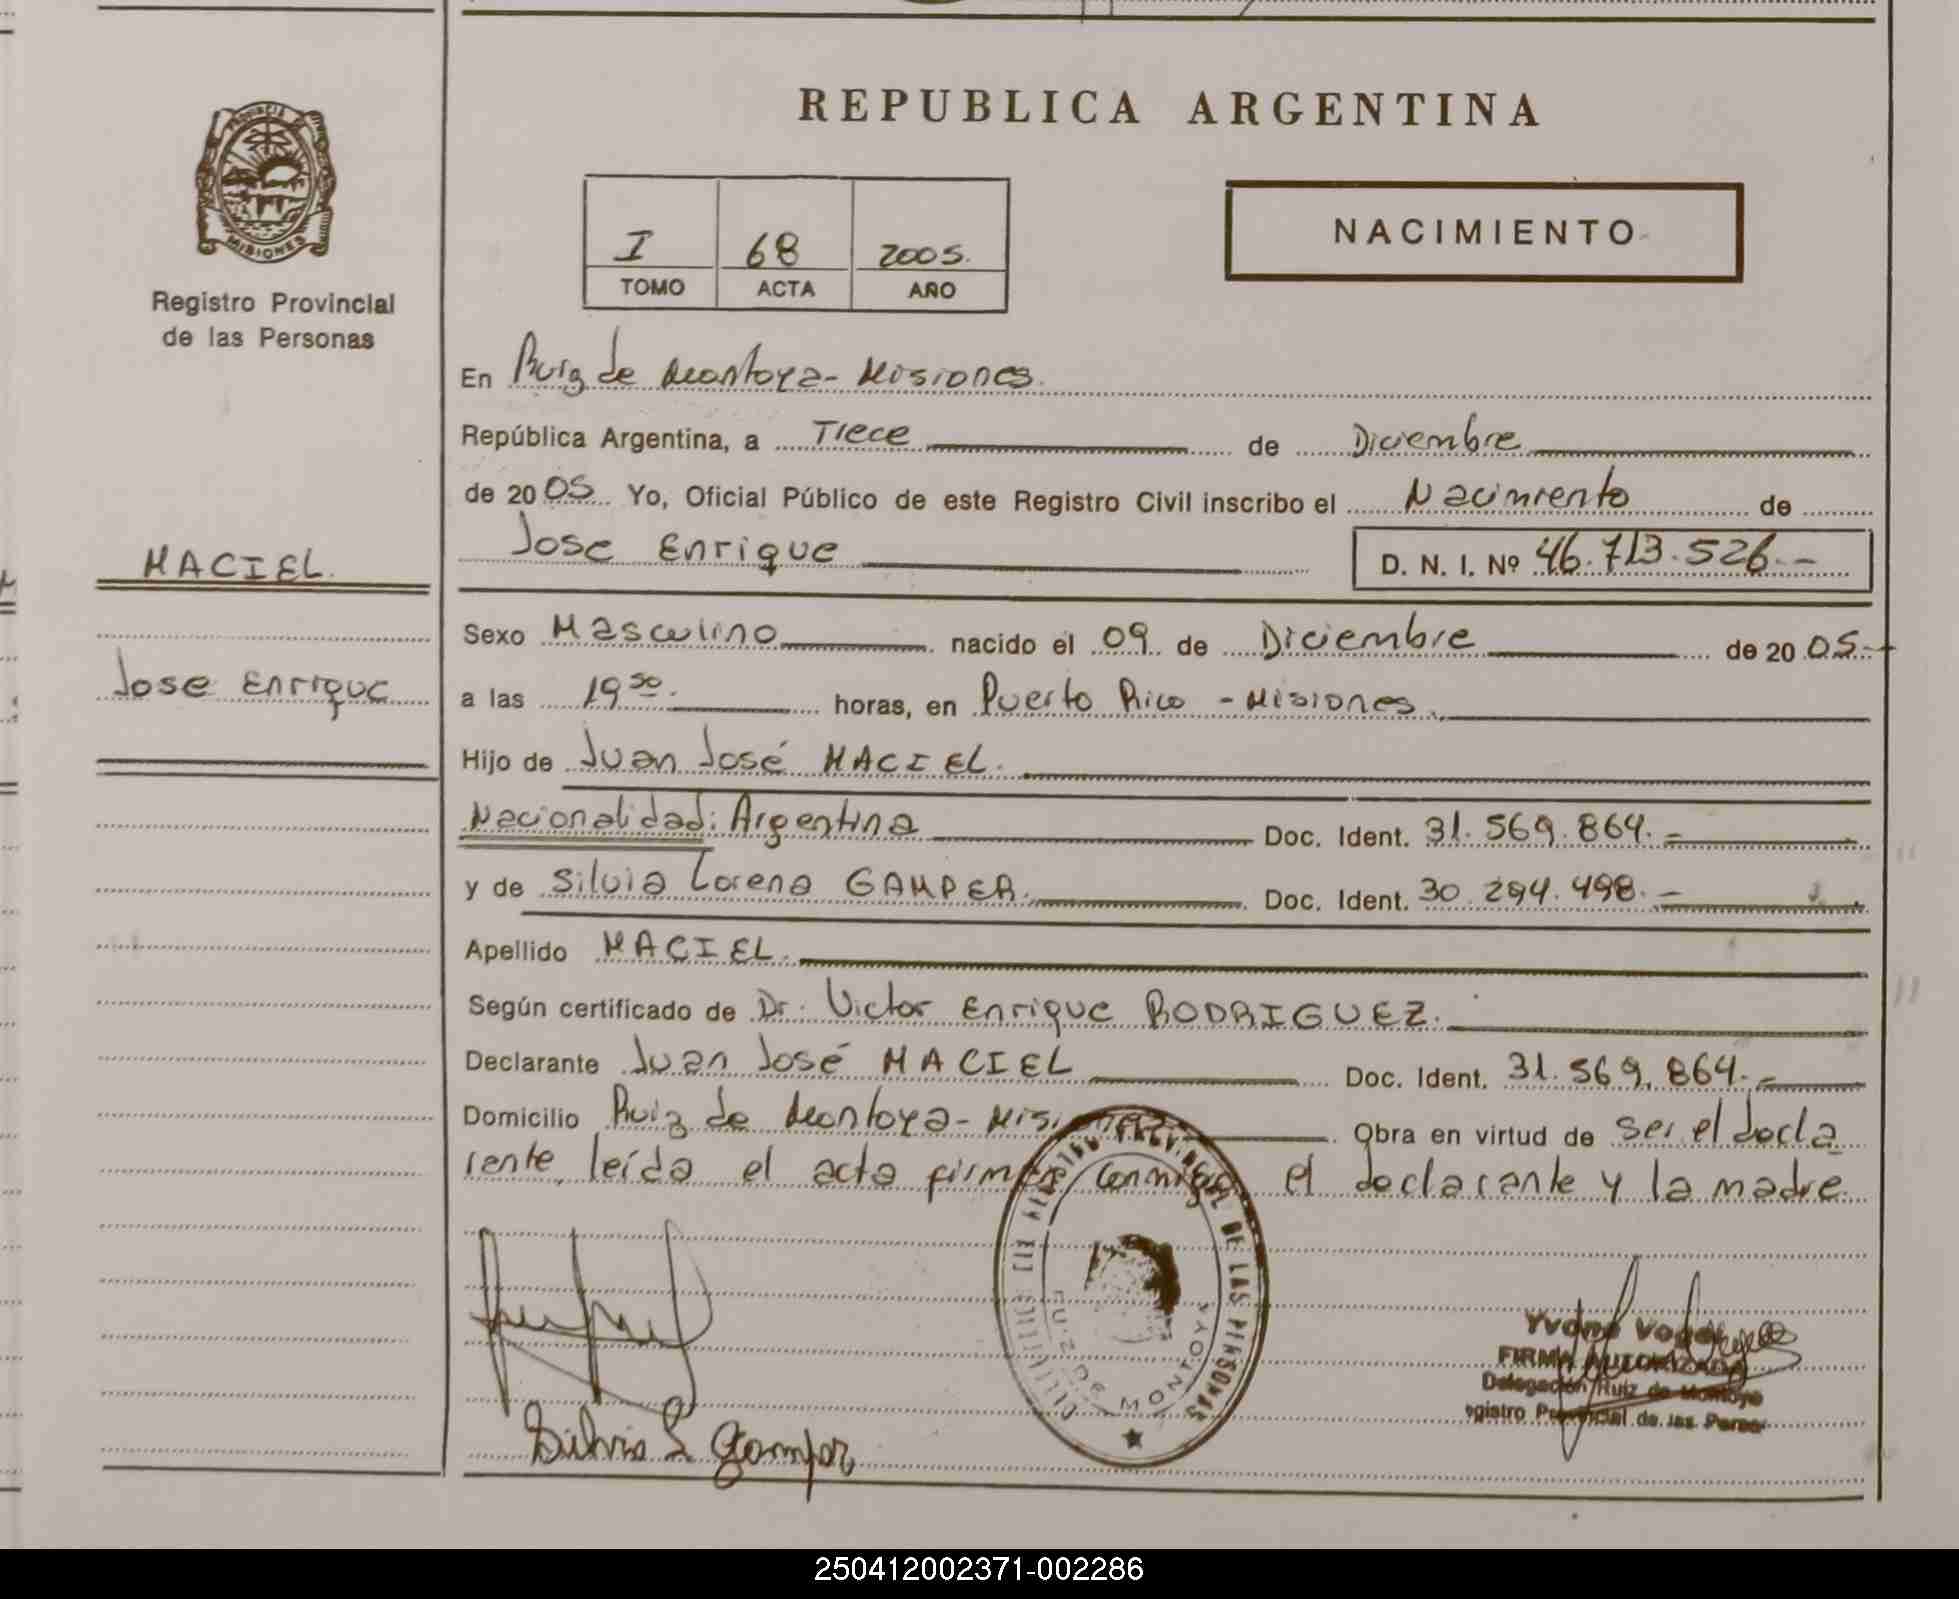 REPUBLICA ARGENTINA
PROVINCIA DE
MISIONES
Registro Provincial
de las Personas
I 68 2005.
TOMO ACTA AÑO
NACIMIENTO
En Ruiz de Montoya - Misiones.
República Argentina, a Trece de Diciembre
de 2005 Yo, Oficial Público de este Registro Civil inscribo el Nacimiento de
Jose Enrique D. N. I. Nº 46.713.526.-
MACIEL.
Jose Enrique
Sexo Masculino nacido el 09 de Diciembre de 2005.-
a las 19 50. horas, en Puerto Rico - Misiones.
Hijo de Juan José MACIEL.
Nacionalidad: Argentina Doc. Ident. 31.569.864.-
y de Silvia Lorena GAMPER. Doc. Ident. 30.294.498.-
Apellido MACIEL.
Según certificado de Dr. Victor Enrique RODRIGUEZ.
Declarante Juan José MACIEL Doc. Ident. 31.569.864.-
Domicilio Ruiz de Montoya - Misiones Obra en virtud de ser el decla
rente, leída el acta firman conmigo el declarante y la madre
DE LAS PERSONAS
RUIZ DE MONTOYA
Silvia L Gamper
FIRMA AUTORIZADA
Delegación Ruiz de Montoya
Provincial de las
250412002371-002286